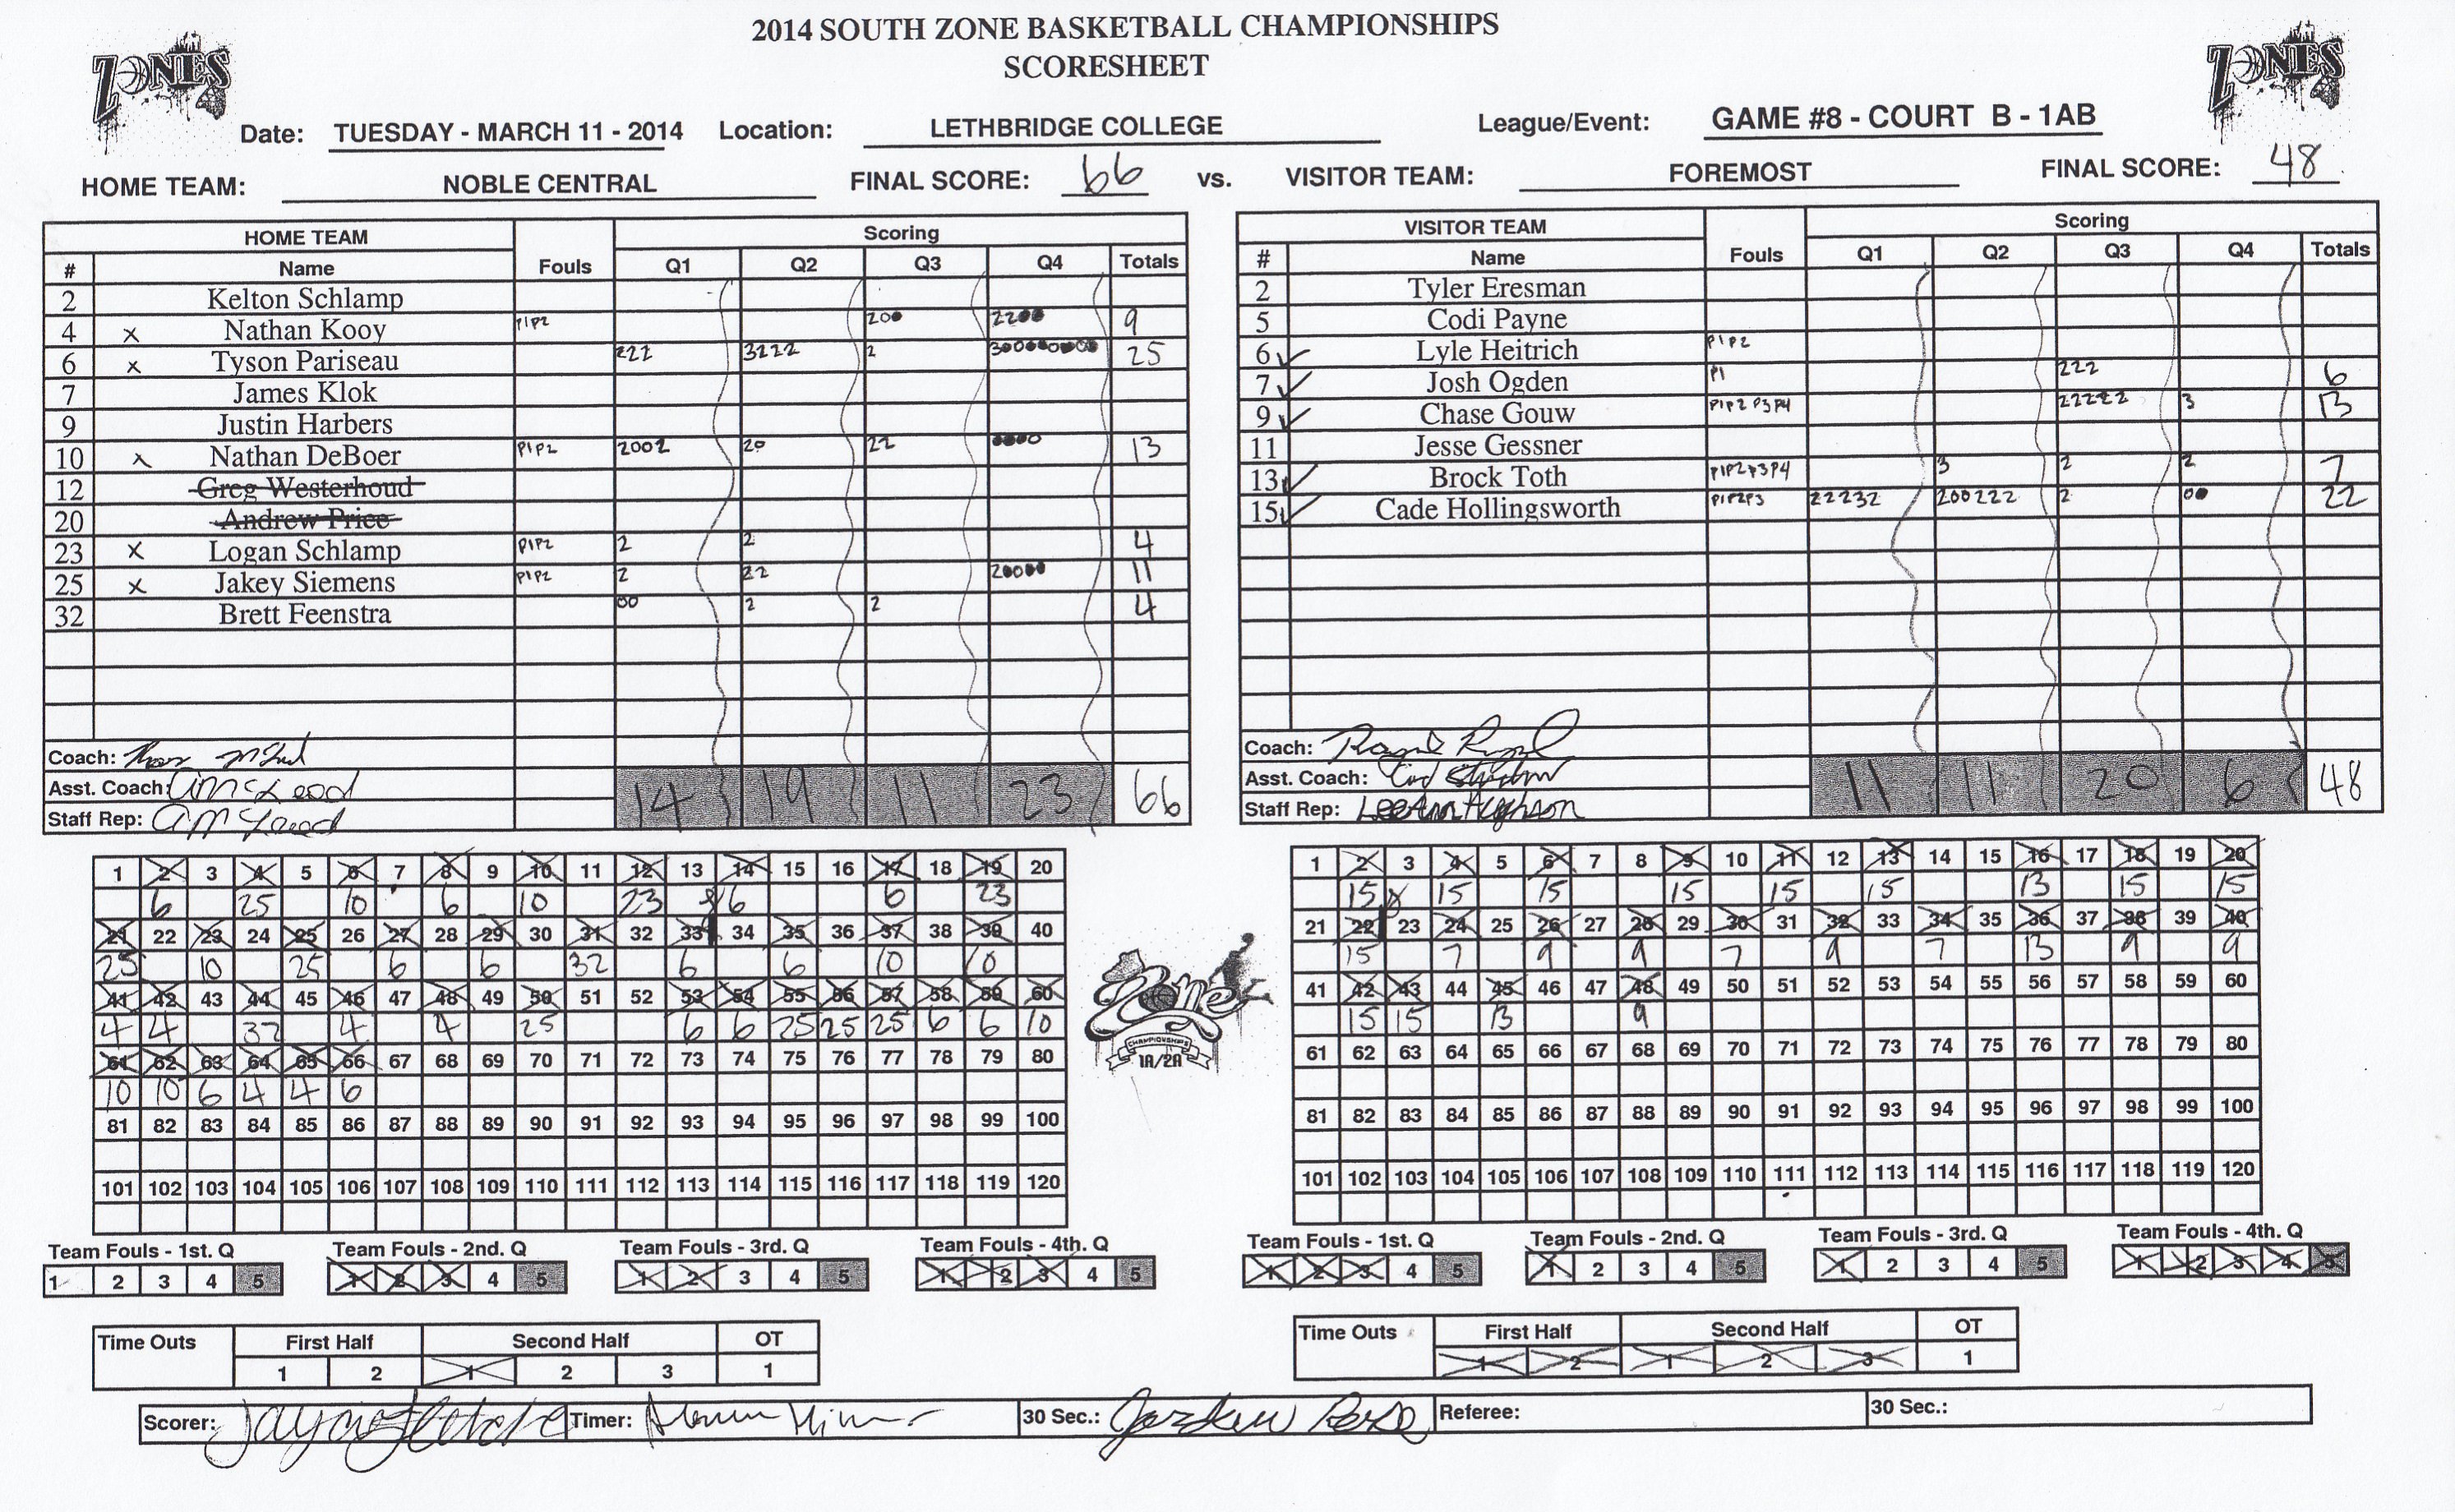 2014 SOUTH ZONE BASKETBALL CHAMPIONSHIPS
SCORESHEET
ZONES
ZONES
Date: TUESDAY - MARCH 11 - 2014 Location: LETHBRIDGE COLLEGE League/Event: GAME #8 - COURT B - 1AB
HOME TEAM: NOBLE CENTRAL FINAL SCORE: 66 vs. VISITOR TEAM: FOREMOST FINAL SCORE: 48
HOME TEAM Fouls Scoring
# Name Q1 Q2 Q3 Q4 Totals
2 Kelton Schlamp
4 x Nathan Kooy P1P2 200 2200 9
6 x Tyson Pariseau 222 3222 2 25
7 James Klok
9 Justin Harbers
10 x Nathan DeBoer P1P2 2002 20 22 0000 13
12 Greg Westerhoud
20 Andrew Price
23 x Logan Schlamp P1P2 2 2 4
25 x Jakey Siemens P1P2 2 22 20000 11
32 Brett Feenstra 00 2 2 4
Coach:
Asst. Coach: A McLeod
Staff Rep:
14 19 11 23 66
VISITOR TEAM Fouls Scoring
# Name Q1 Q2 Q3 Q4 Totals
2 Tyler Eresman
5 Codi Payne
6 Lyle Heitrich P1P2
7 Josh Ogden P1 222 6
9 Chase Gouw P1P2P3P4 22222 3 13
11 Jesse Gessner
13 Brock Toth P1P2P3P4 3 2 2 7
15 Cade Hollingsworth P1P2P3 22232 200222 2 00 22
Coach:
Asst. Coach:
Staff Rep:
11 11 20 6 48
1 2 3 4 5 6 7 8 9 10 11 12 13 14 15 16 17 18 19 20
6 25 10 6 10 23 6 6 23
21 22 23 24 25 26 27 28 29 30 31 32 33 34 35 36 37 38 39 40
25 10 25 6 6 32 6 6 10 10
41 42 43 44 45 46 47 48 49 50 51 52 53 54 55 56 57 58 59 60
4 4 32 4 4 25 6 6 25 25 25 6 6 10
61 62 63 64 65 66 67 68 69 70 71 72 73 74 75 76 77 78 79 80
10 10 6 4 4 6
81 82 83 84 85 86 87 88 89 90 91 92 93 94 95 96 97 98 99 100
101 102 103 104 105 106 107 108 109 110 111 112 113 114 115 116 117 118 119 120
Zone
CHAMPIONSHIPS
1A/2A
1 2 3 4 5 6 7 8 9 10 11 12 13 14 15 16 17 18 19 20
15 15 15 15 15 15 13 15 15
21 22 23 24 25 26 27 28 29 30 31 32 33 34 35 36 37 38 39 40
15 7 9 9 7 9 7 13 9 9
41 42 43 44 45 46 47 48 49 50 51 52 53 54 55 56 57 58 59 60
15 15 13 9
61 62 63 64 65 66 67 68 69 70 71 72 73 74 75 76 77 78 79 80
81 82 83 84 85 86 87 88 89 90 91 92 93 94 95 96 97 98 99 100
101 102 103 104 105 106 107 108 109 110 111 112 113 114 115 116 117 118 119 120
Team Fouls - 1st. Q Team Fouls - 2nd. Q Team Fouls - 3rd. Q Team Fouls - 4th. Q
1 2 3 4 5 1 2 3 4 5 1 2 3 4 5 1 2 3 4 5
Team Fouls - 1st. Q Team Fouls - 2nd. Q Team Fouls - 3rd. Q Team Fouls - 4th. Q
1 2 3 4 5 1 2 3 4 5 1 2 3 4 5 1 2 3 4 5
Time Outs First Half Second Half OT
1 2 1 2 3 1
Time Outs First Half Second Half OT
1 2 1 2 3 1
Scorer: Timer: 30 Sec.: Referee: 30 Sec.: